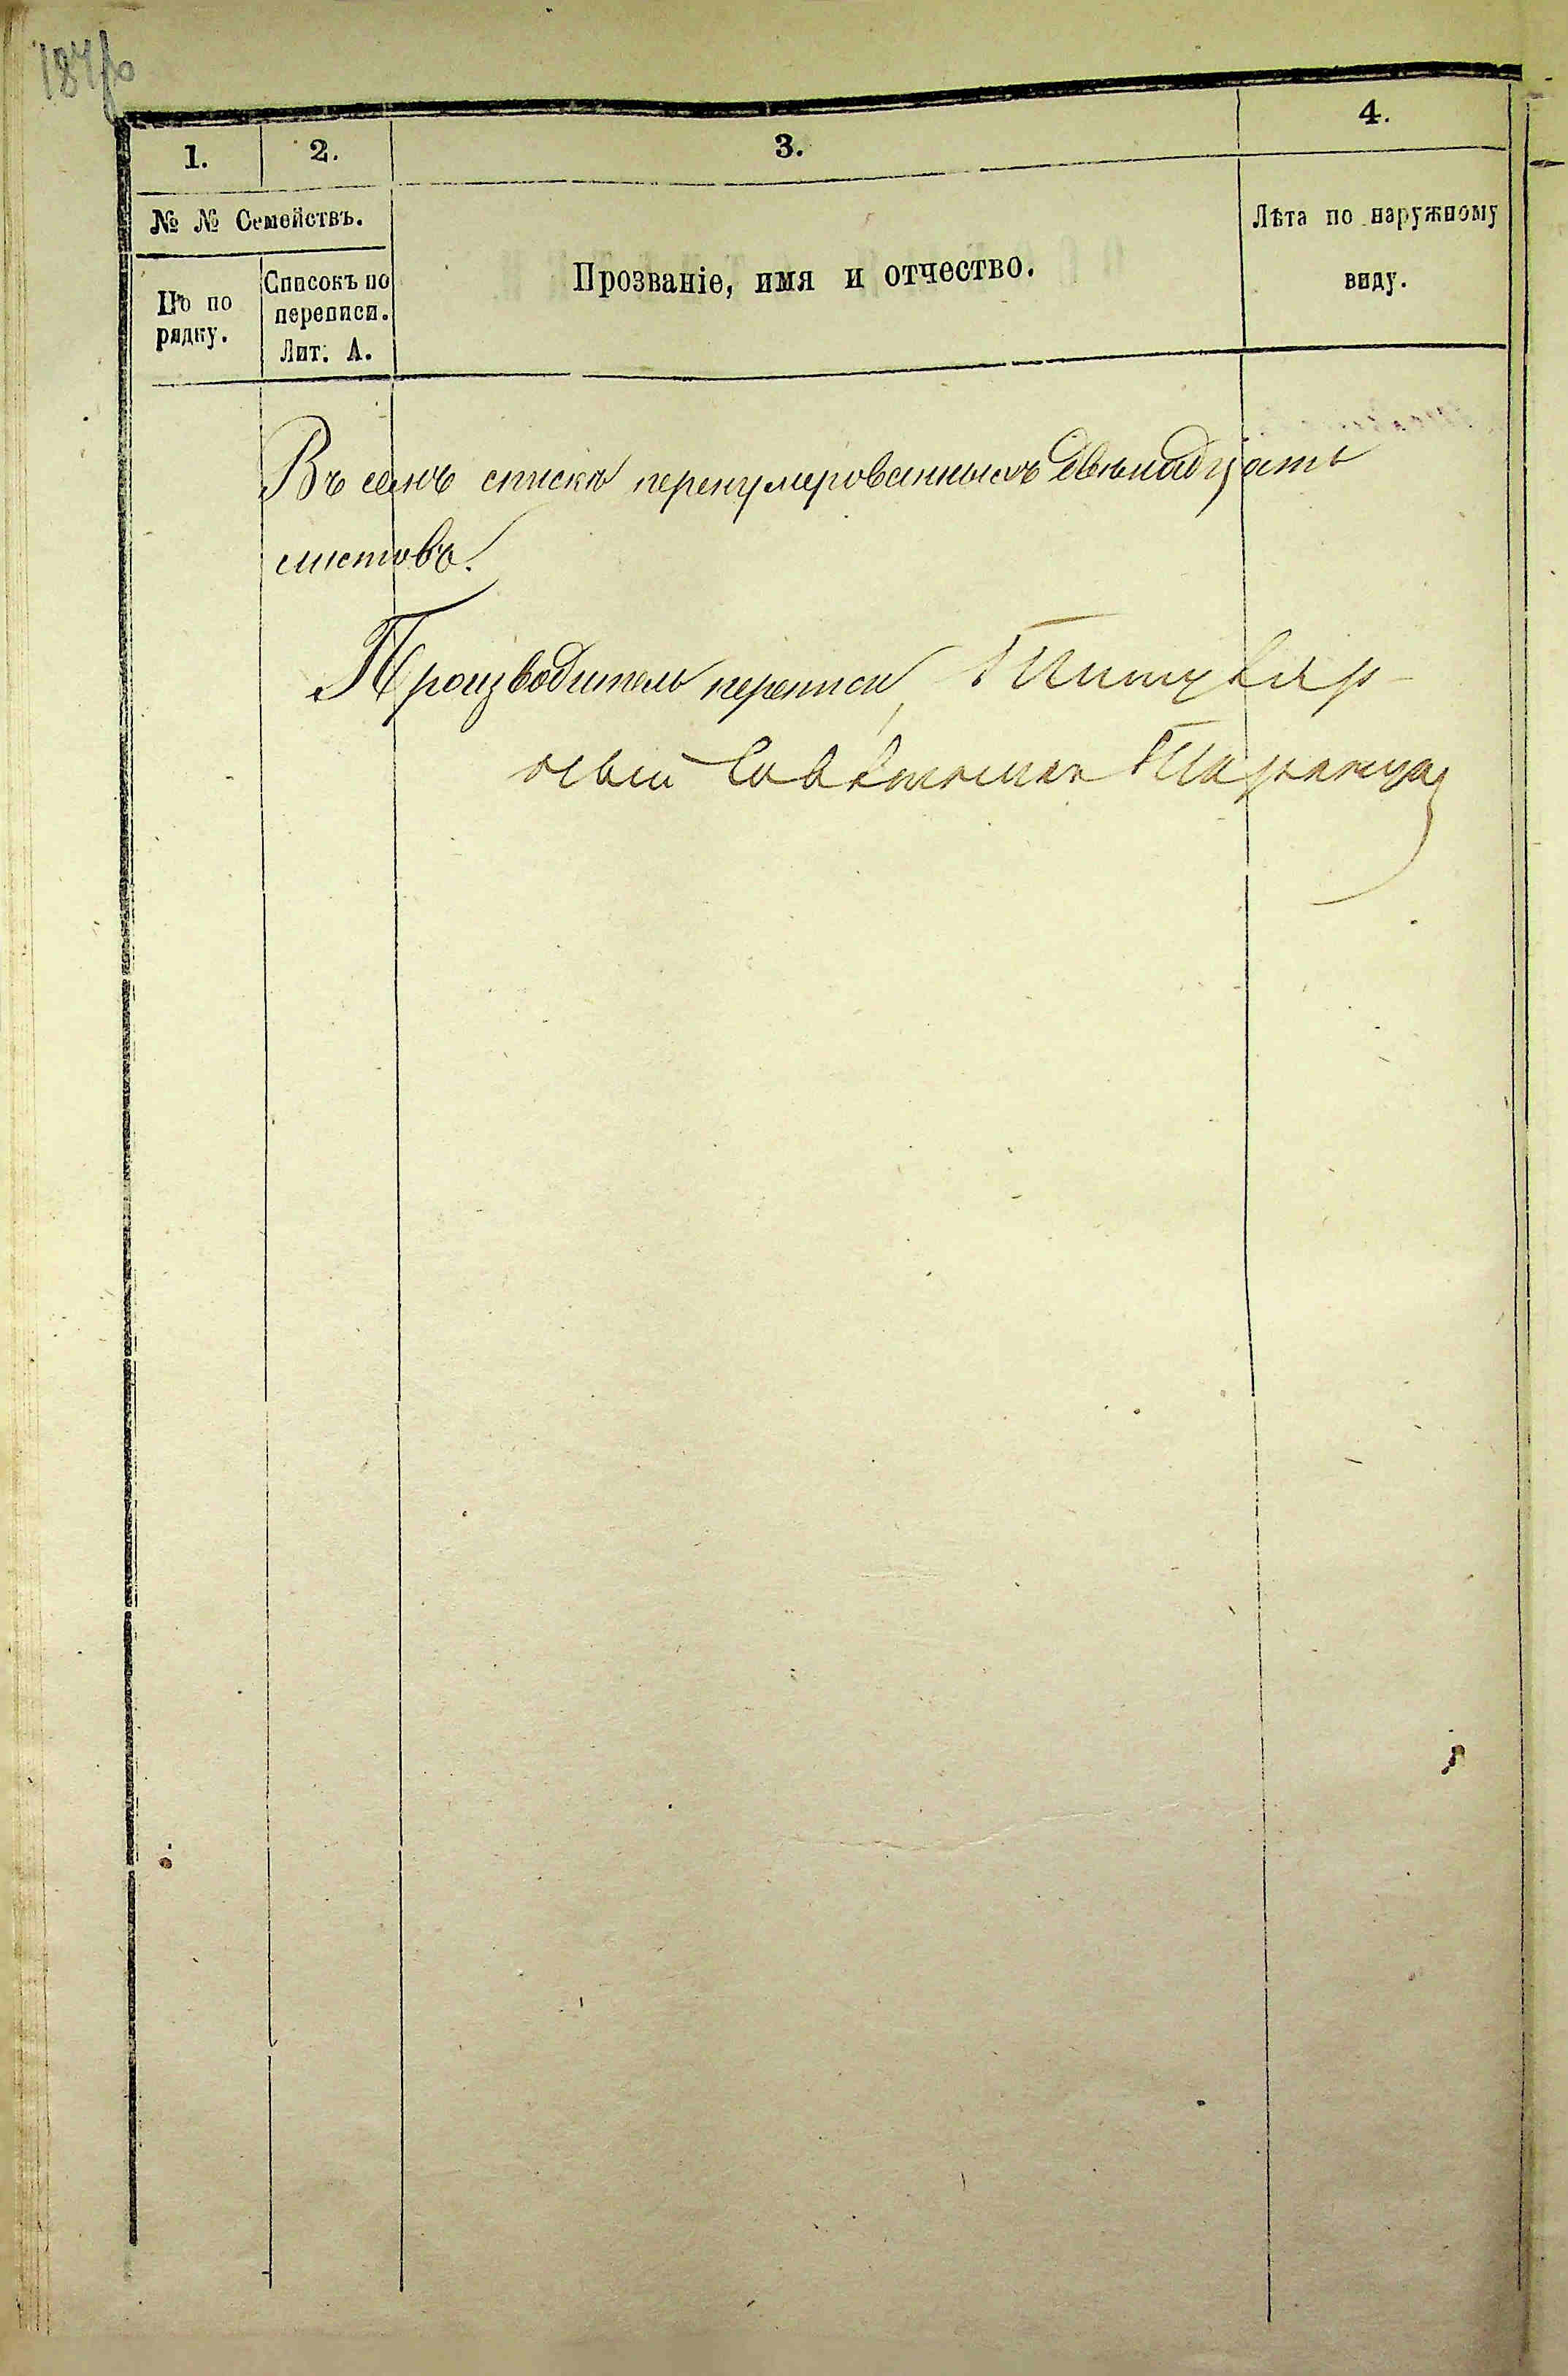 187об
1.
2.
3.
4.
№ № Семействъ.
По по
рядку.
Списокъ по
переписи.
Лит. А.
Прозваніе, имя и отчество.
Лѣта по наружному
виду.
Въ семъ спискѣ перенумерованныхъ двѣнадцать
листовъ.
Производитель переписи, Титуляр-
ный Совѣтникъ